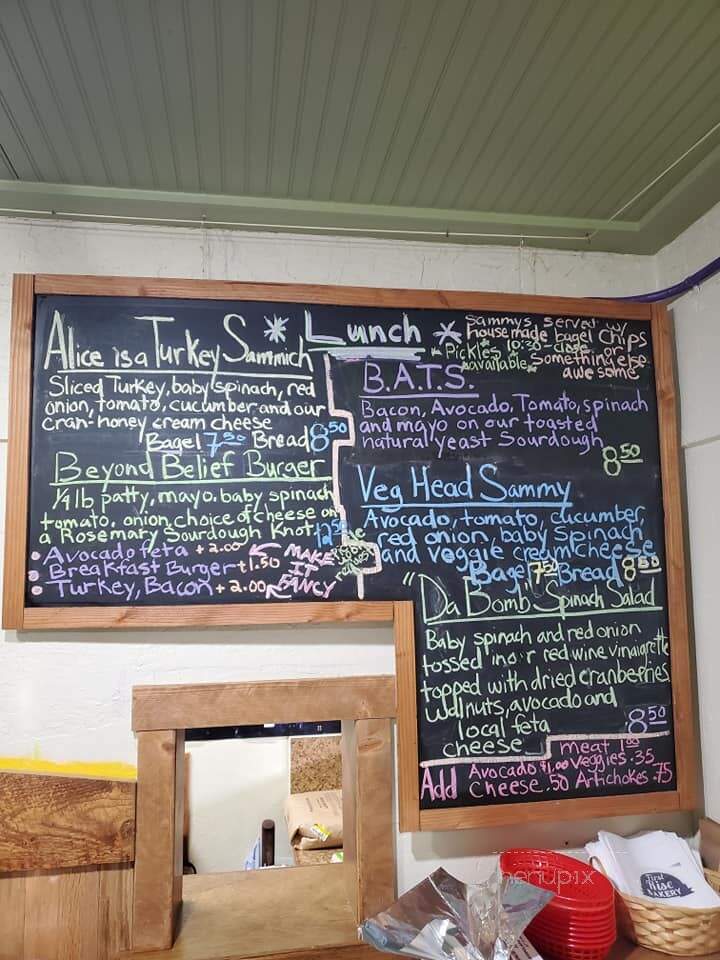 * Lunch *
Sammys served w/
housemade bagel chips
*Pickles 10:30-close or
*available* Something else
awesome
Alice is a Turkey Sammich
Sliced Turkey, baby spinach, red
onion, tomato, cucumber and our
cran-honey cream cheese
Bagel 7.50 Bread 8.50
Beyond Belief Burger
1/4 lb patty, mayo, baby spinach
tomato, onion choice of cheese on
a Rosemary Sourdough Knot 12.50
• Avocado feta + 2.00
• Breakfast Burger + 1.50
• Turkey, Bacon + 2.00
MAKE
IT
FANCY
B.A.T.S.
Bacon, Avocado, Tomato, spinach
and mayo on our toasted
natural yeast Sourdough
8.50
Veg Head Sammy
Avocado, tomato, cucumber,
red onion, baby spinach
and veggie cream cheese
Bagel 7.50 Bread 8.50
"Da Bomb" Spinach Salad
Baby spinach and red onion
tossed in our red wine vinaigrette
topped with dried cranberries
walnuts, avocado and
local feta
cheese 8.50
Add Avocado $1.00 Veggies .35
Cheese .50 Artichokes .75
meat 1.00
First
Rise
BAKERY
menupix